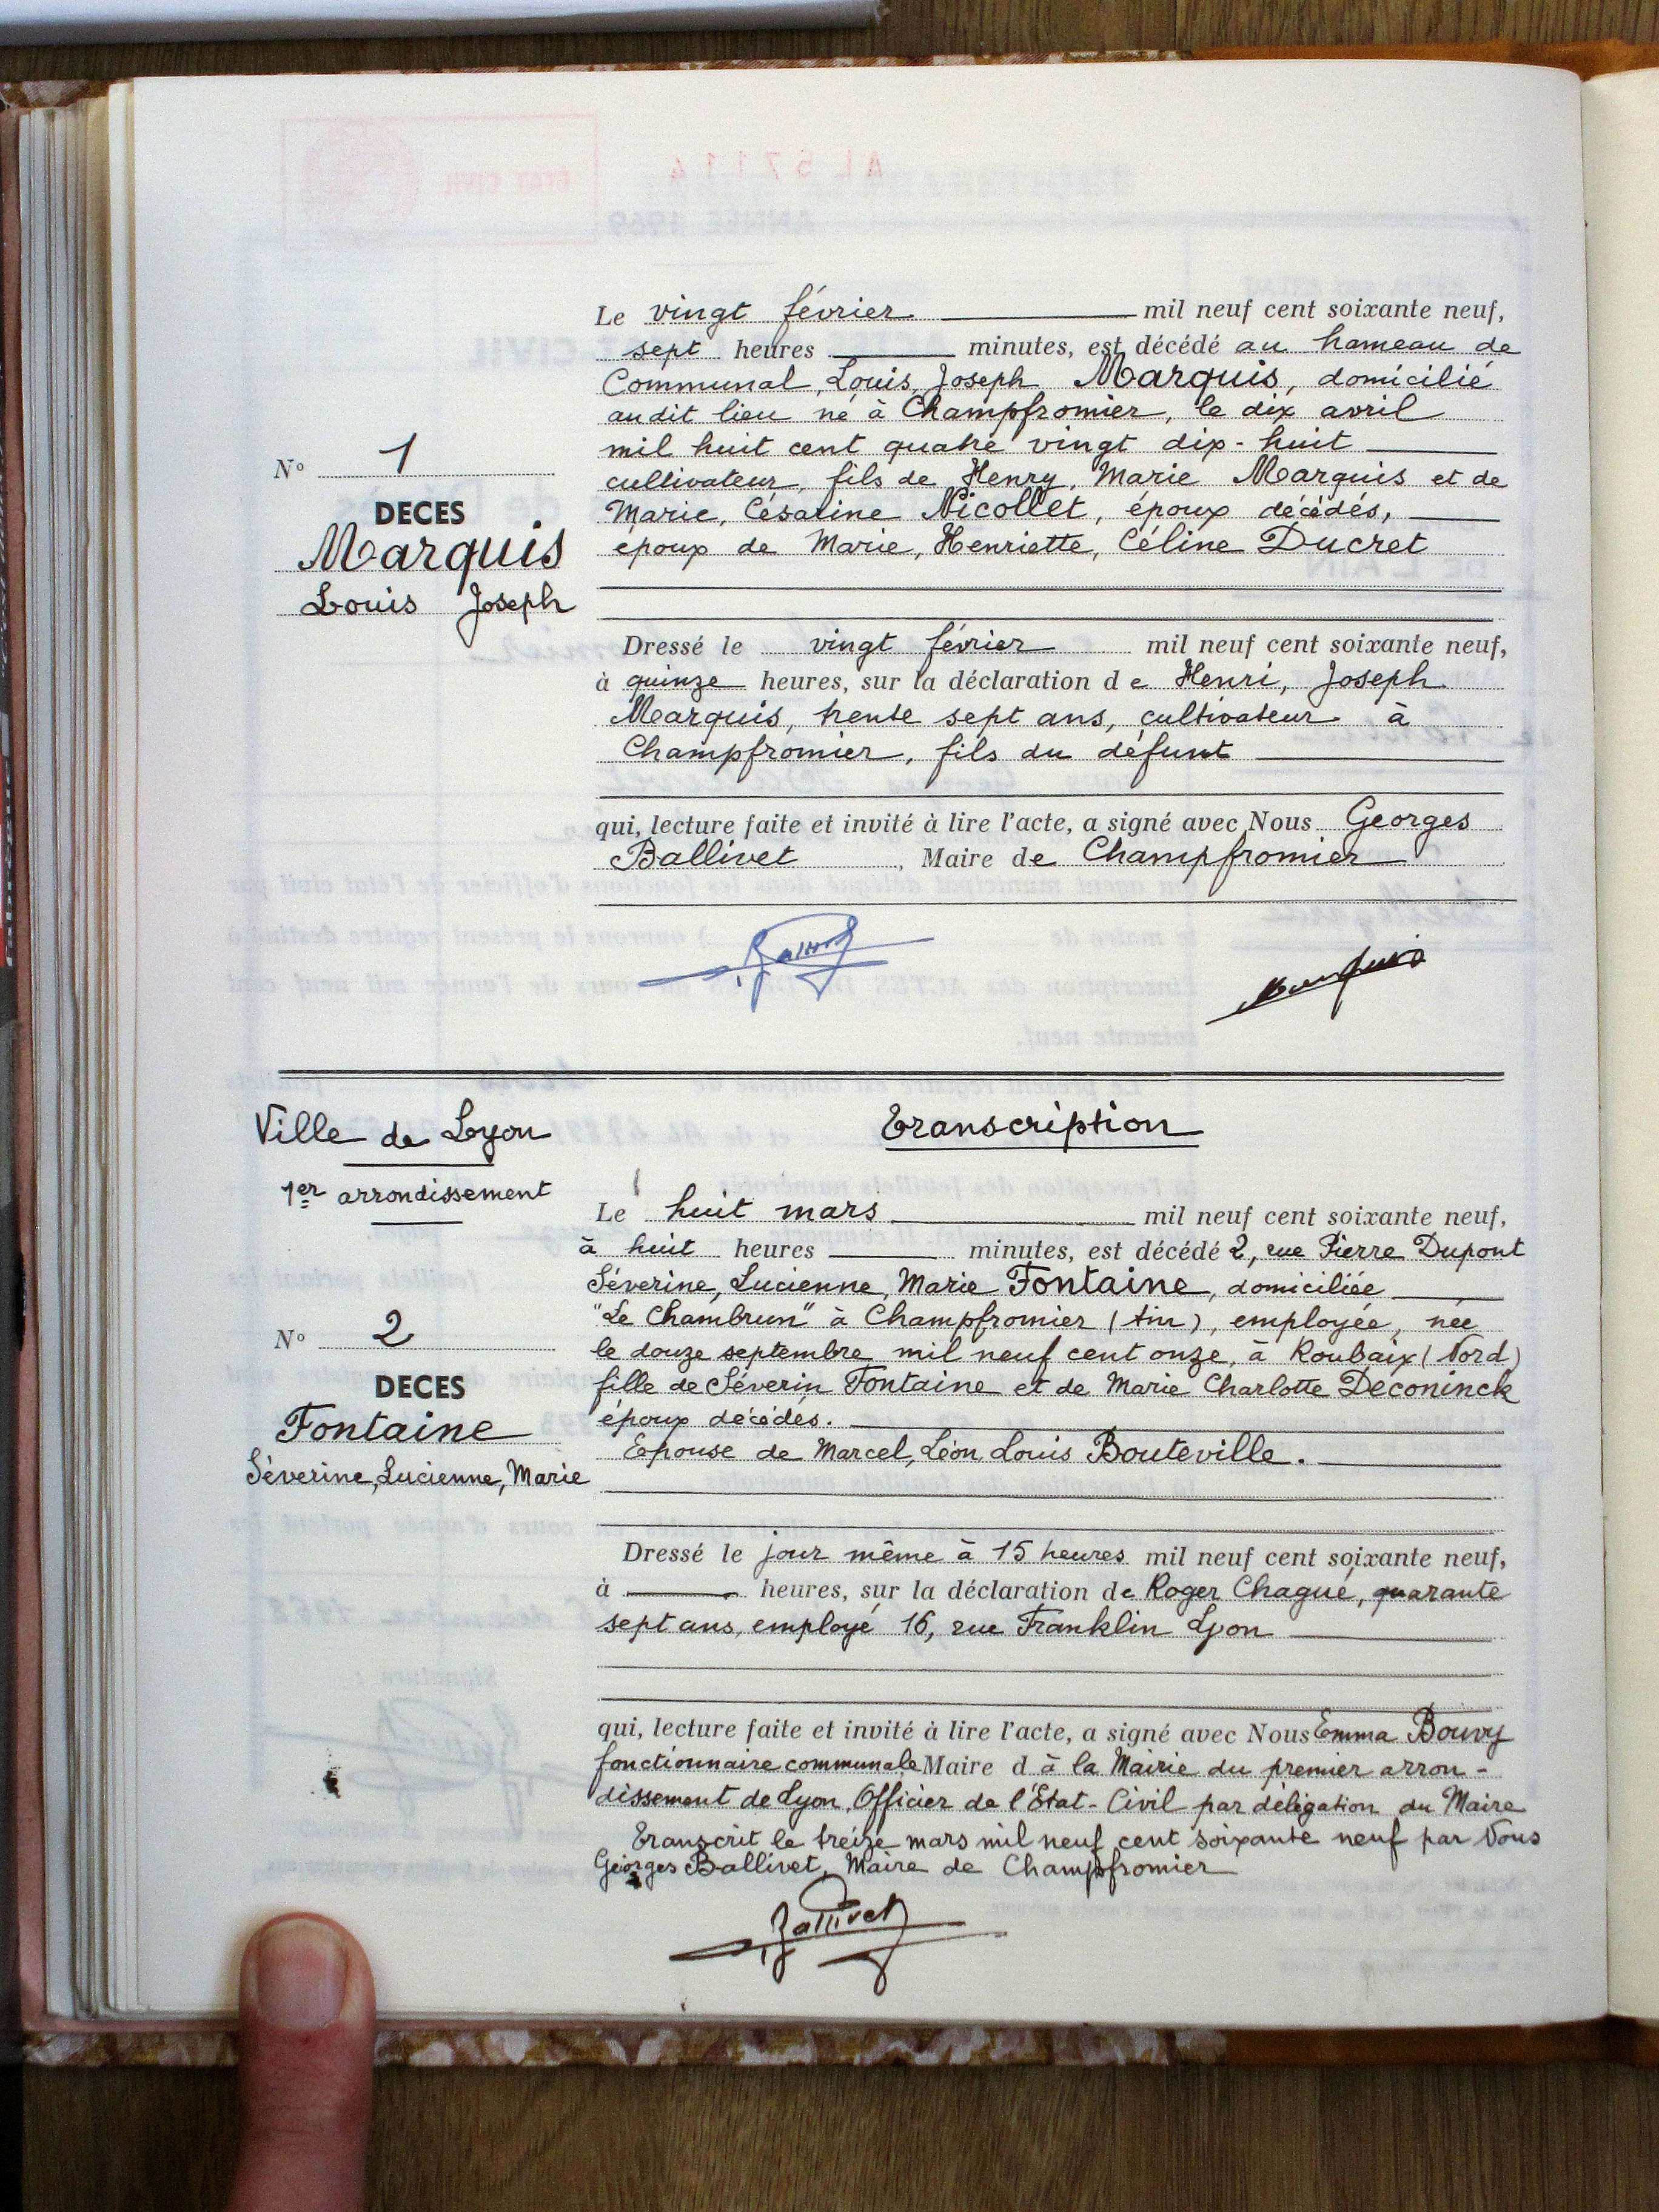 Le vingt février mil neuf cent soixante neuf,
sept heures minutes, est décédé au hameau de
Communal, Louis, Joseph Marquis, domicilié
audit lieu né à Champfromier, le dix avril
mil huit cent quatre vingt dix-huit
cultivateur, fils de Henry, Marie Marquis et de
Marie, Césarine Nicollet, époux décédés,
époux de Marie, Henriette, Céline Ducret
N° 1
DECES
Marquis
Louis Joseph
Dressé le vingt février mil neuf cent soixante neuf,
à quinze heures, sur la déclaration de Henri, Joseph
Marquis, trente sept ans, cultivateur à
Champfromier, fils du défunt
qui, lecture faite et invité à lire l'acte, a signé avec Nous Georges
Ballivet, Maire de Champfromier
Ballivet
Marquis
Ville de Lyon
1er arrondissement
Transcription
Le huit mars mil neuf cent soixante neuf,
à huit heures minutes, est décédé 2, rue Pierre Dupont
Séverine, Lucienne, Marie Fontaine, domiciliée
"Le Chambrun" à Champfromier (Ain), employée, née
le douze septembre mil neuf cent onze, à Roubaix (Nord)
fille de Séverin Fontaine et de Marie Charlotte Deconinck
époux décédés.
Epouse de Marcel, Léon Louis Bouteville.
N° 2
DECES
Fontaine
Séverine, Lucienne, Marie
Dressé le jour même à 15 heures mil neuf cent soixante neuf,
à heures, sur la déclaration de Roger Chagué, quarante
sept ans, employé 16, rue Franklin Lyon
qui, lecture faite et invité à lire l'acte, a signé avec Nous Emma Bouvy
fonctionnaire communale Maire d à la Mairie du premier arron-
dissement de Lyon, Officier de l'Etat-Civil par déligation du Maire
Transcrit le treize mars mil neuf cent soixante neuf par Nous
Georges Ballivet, Maire de Champfromier
Ballivet